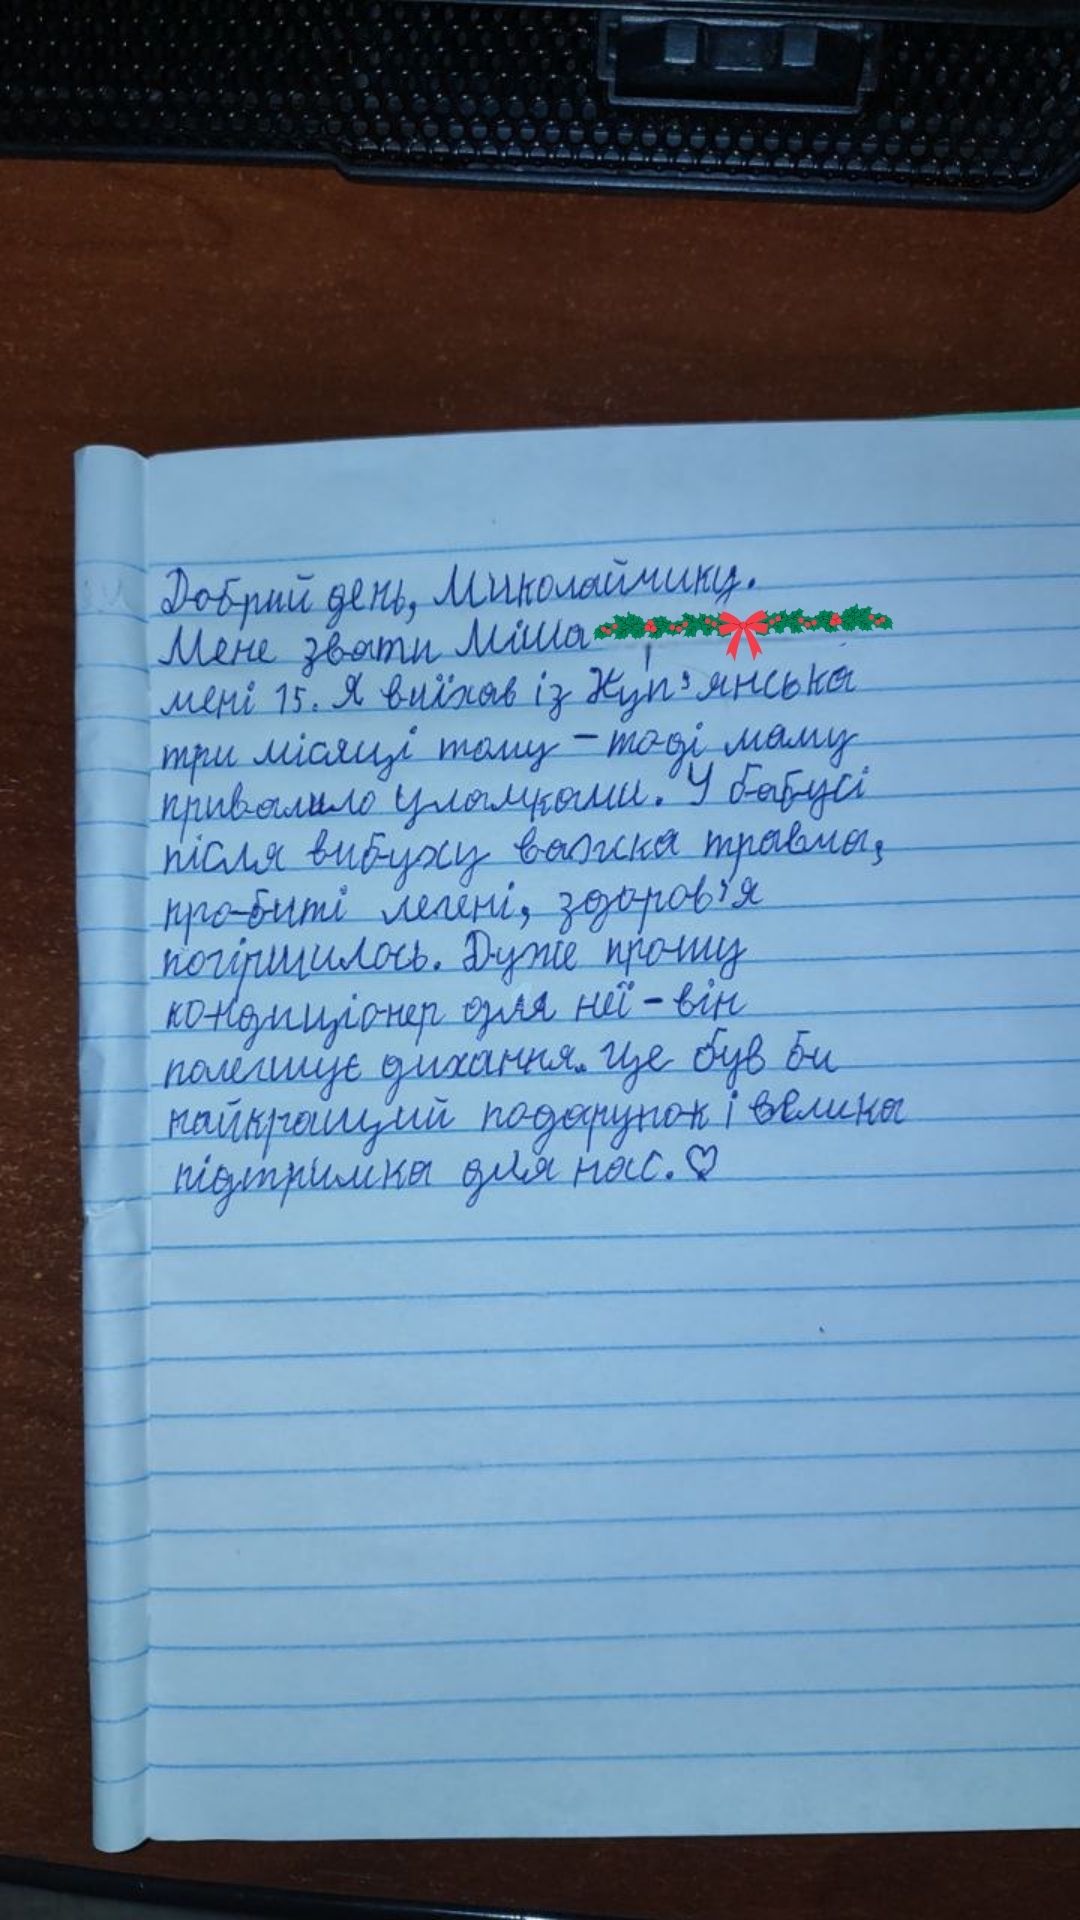 Добрий день, Миколайчику.
Мене звати Міша
мені 15. Я виїхав із Куп'янська
три місяці тому – тоді маму
привалило уламками. У бабусі
після вибуху важка травма,
пробиті легені, здоров'я
погіршилось. Дуже прошу
кондиціонер для неї – він
полегшує дихання. Це був би
найкращий подарунок і велика
підтримка для нас. ♡